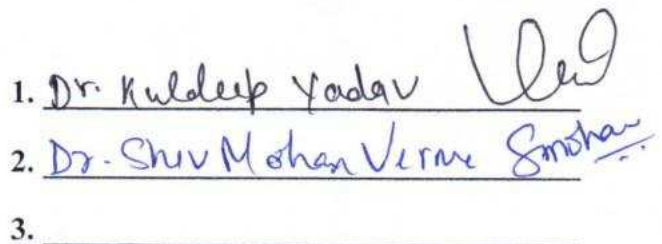 1. Dr. Kuldeep Yadav
2. Dr. Shiv Mohan Verma Smohan
3.